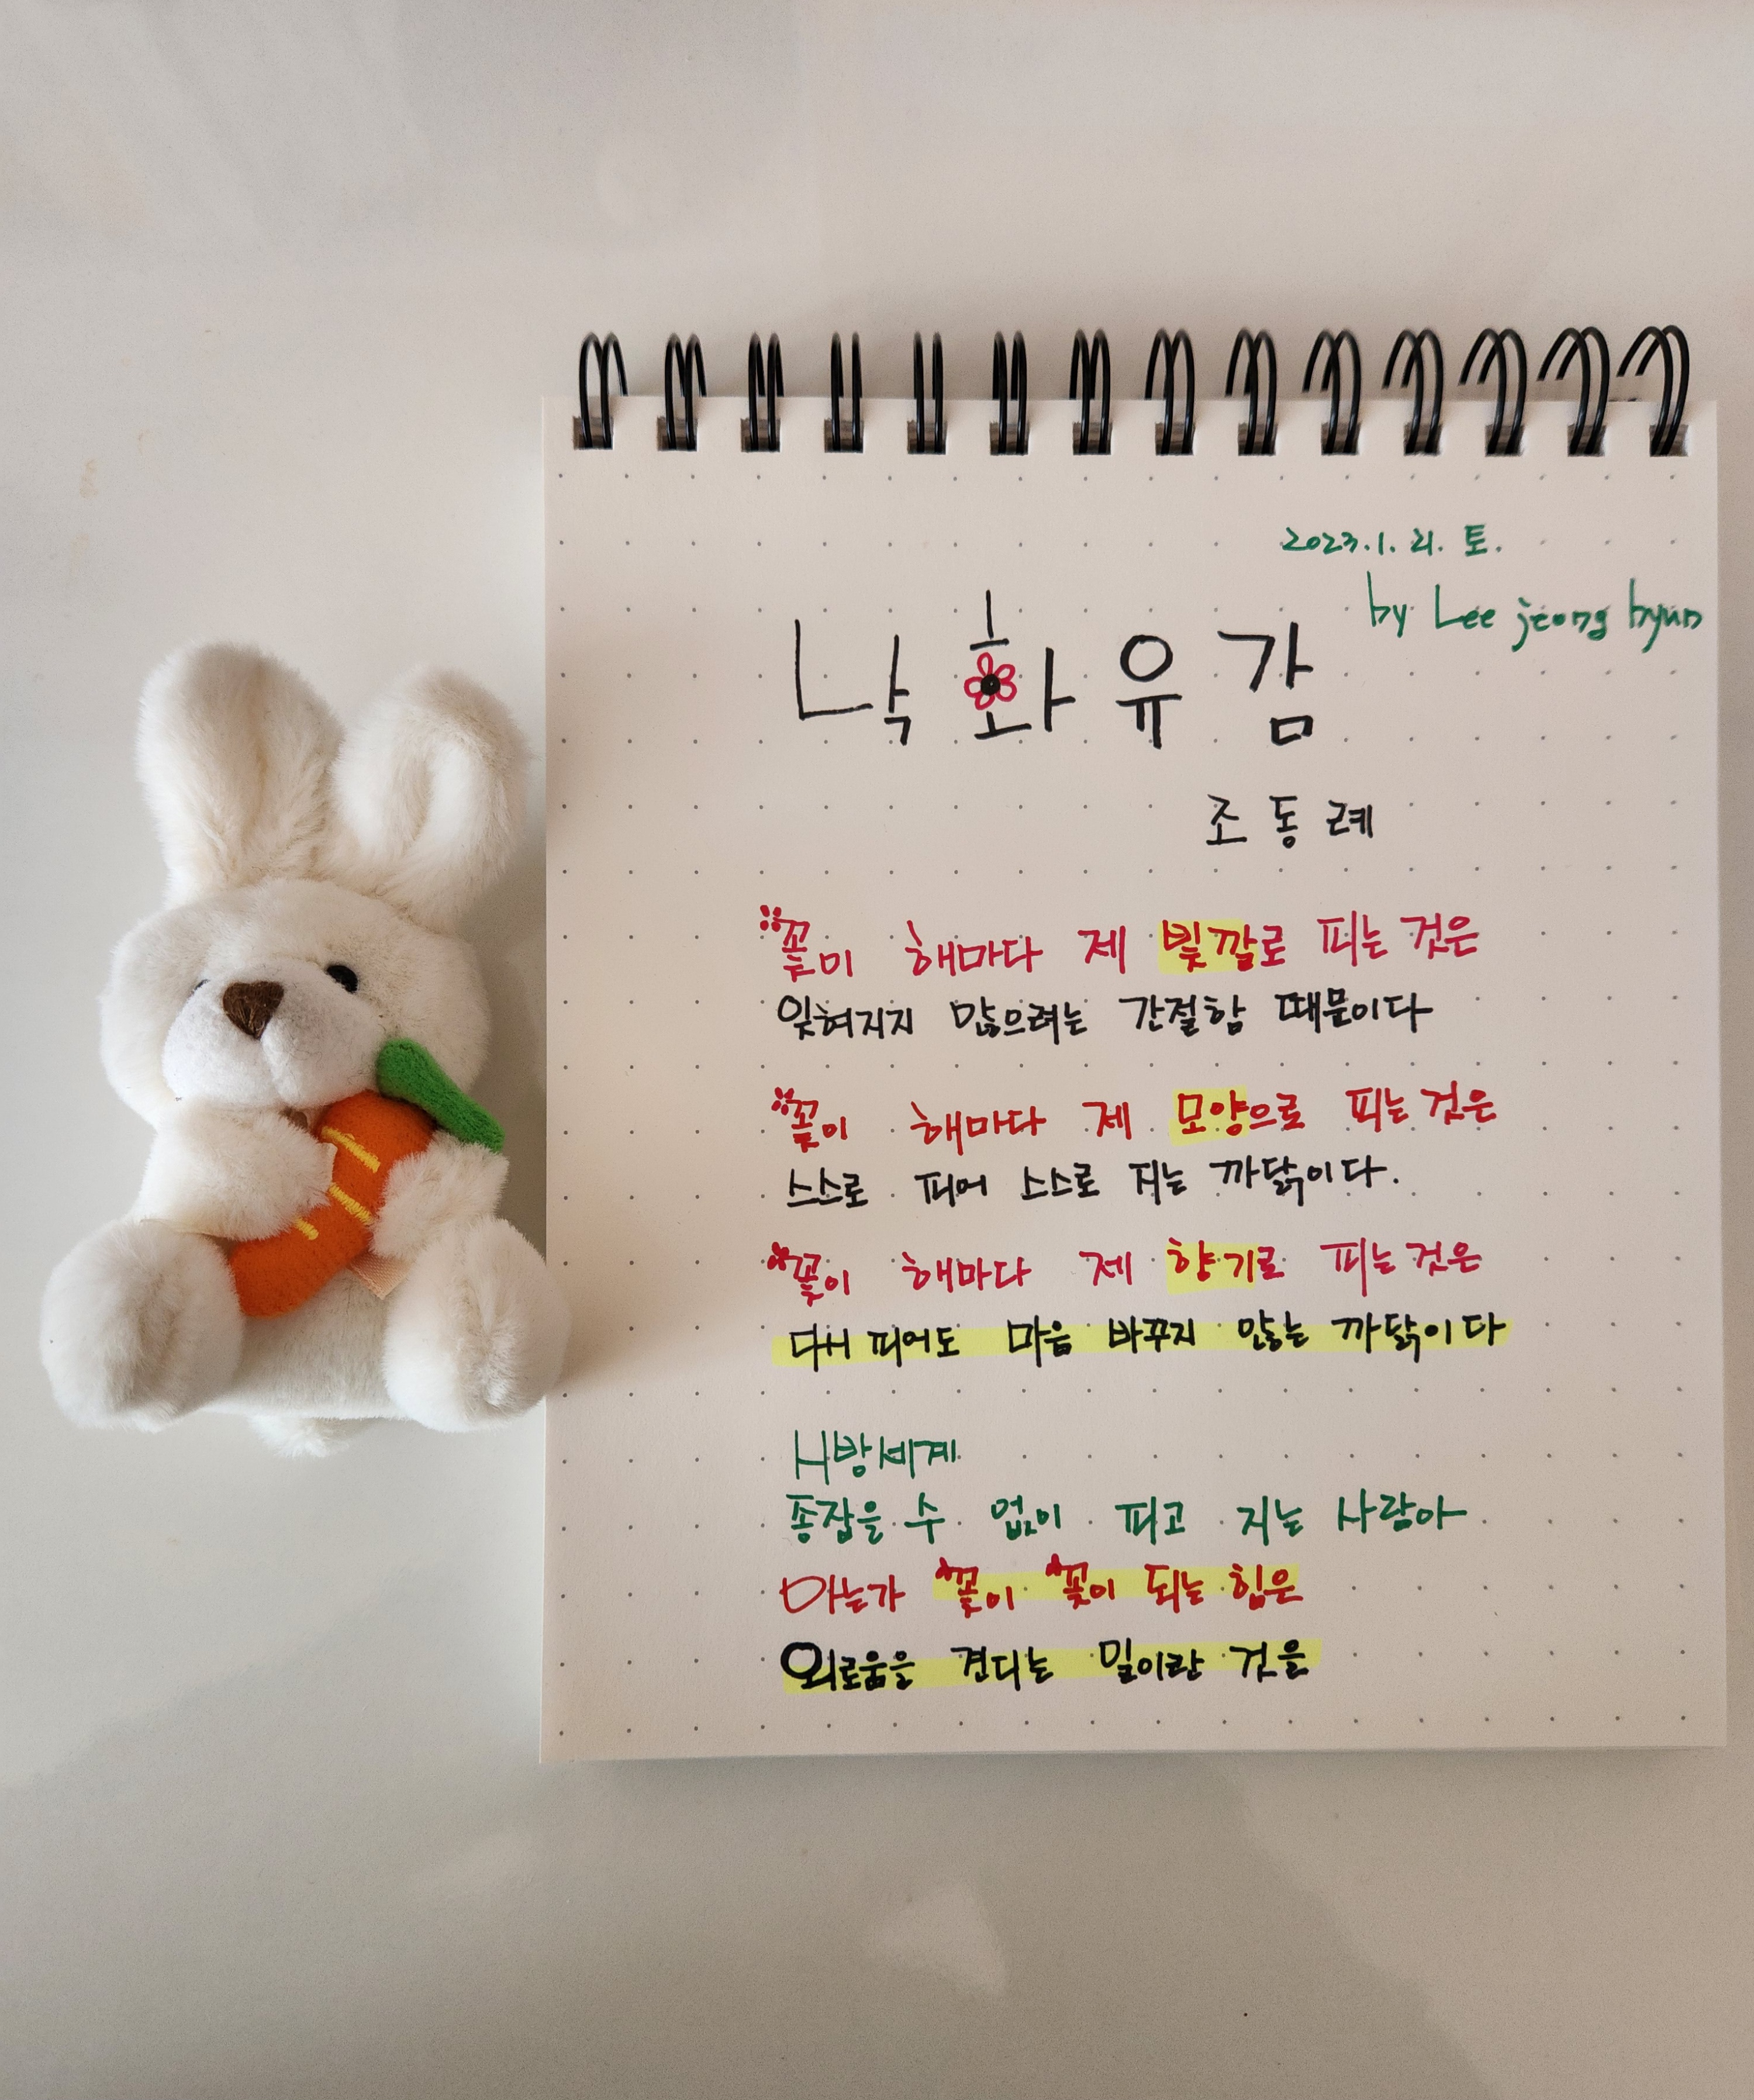 2023.1.21.토.
by Lee jeong hyun
낙화유감
조동례
꽃이 해마다 제 빛깔로 피는 것은
잊혀지지 않으려는 간절함 때문이다
꽃이 해마다 제 모양으로 피는 것은
스스로 피어 스스로 지는 까닭이다.
꽃이 해마다 제 향기로 피는 것은
다시 피어도 마음 바꾸지 않는 까닭이다
사방세계
종잡을 수 없이 피고 지는 사람아
아는가 꽃이 꽃이 되는 힘은
외로움을 견디는 일이란 것을